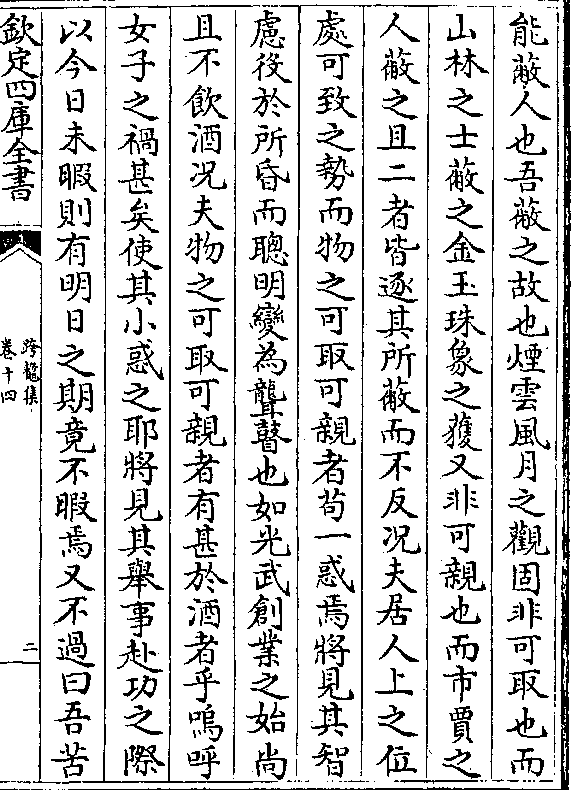 能蔽人也吾蔽之故也煙雲風月之觀固非可取也而
山林之士蔽之金玉珠象之獲又非可親也而市賈之
人蔽之且二者皆逐其所蔽而不反况夫居人上之位
處可致之勢而物之可取可親者苟一惑焉將見其智
慮役於所昏而聰明變為聾瞽也如光武創業之始尚
且不飲酒况夫物之可取可親者有甚於酒者乎嗚呼
女子之禍甚矣使其小惑之耶將見其舉事赴功之際
以今日未暇則有明日之期竟不暇焉又不過曰吾苦
欽定四庫全書
跨鼇集
卷十四
二